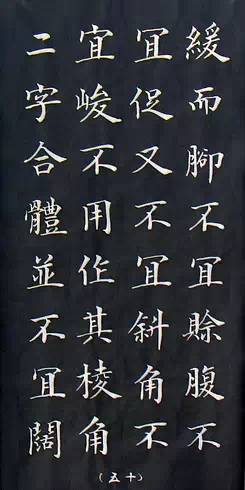 緩而腳不冝賒腹不
冝促又不冝斜角不
宜峻不用作其棱角
二字合體並不冝闊
(五十)